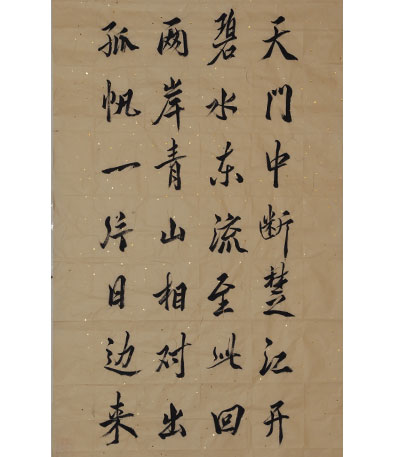 天門中断楚江开
碧水东流至此回
两岸青山相对出
孤帆一片日边来